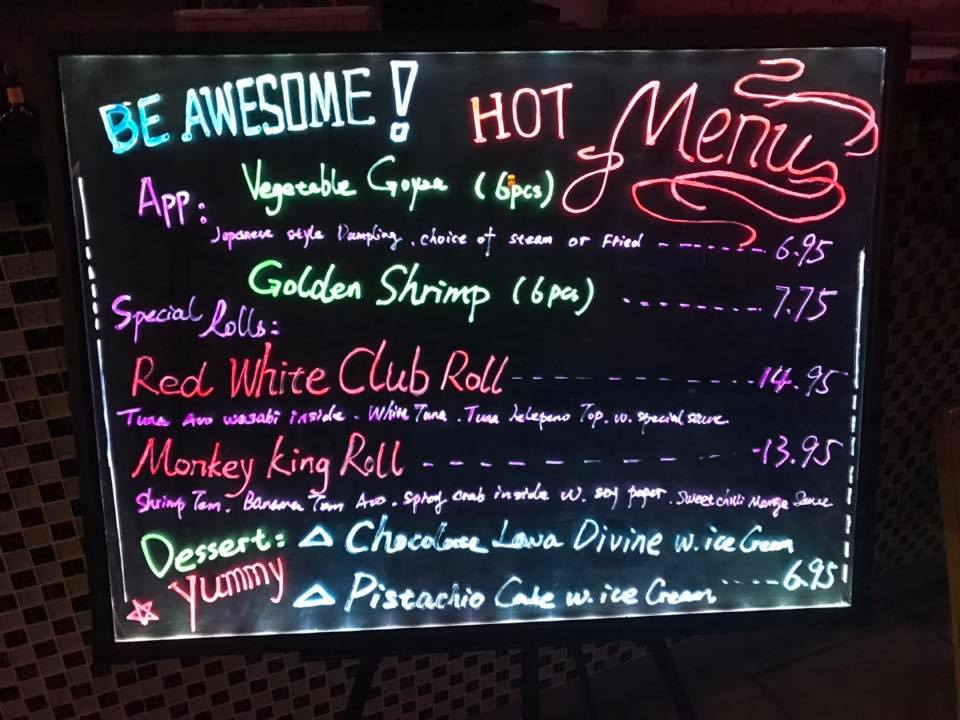 BE AWESOME! HOT Menu
App: Vegetable Goyza (6pcs)
Japanese style Dumpling. choice of steam or Fried ------ 6.95
Golden Shrimp (6pcs) ------ 7.75
Special Rolls:
Red White Club Roll ------ 14.95
Tuna Avo wasabi inside. White Tuna. Tuna Jelepeno Top. w. special sauce
Monkey King Roll ------ 13.95
Shrimp Tem. Banana Tem Avo. spicy crab inside w. soy paper. Sweet chilli Mango Sauce
Dessert: △ Chocolate Lava Divine w. ice Cream
Yummy △ Pistachio Cake w. ice Cream ---- 6.95